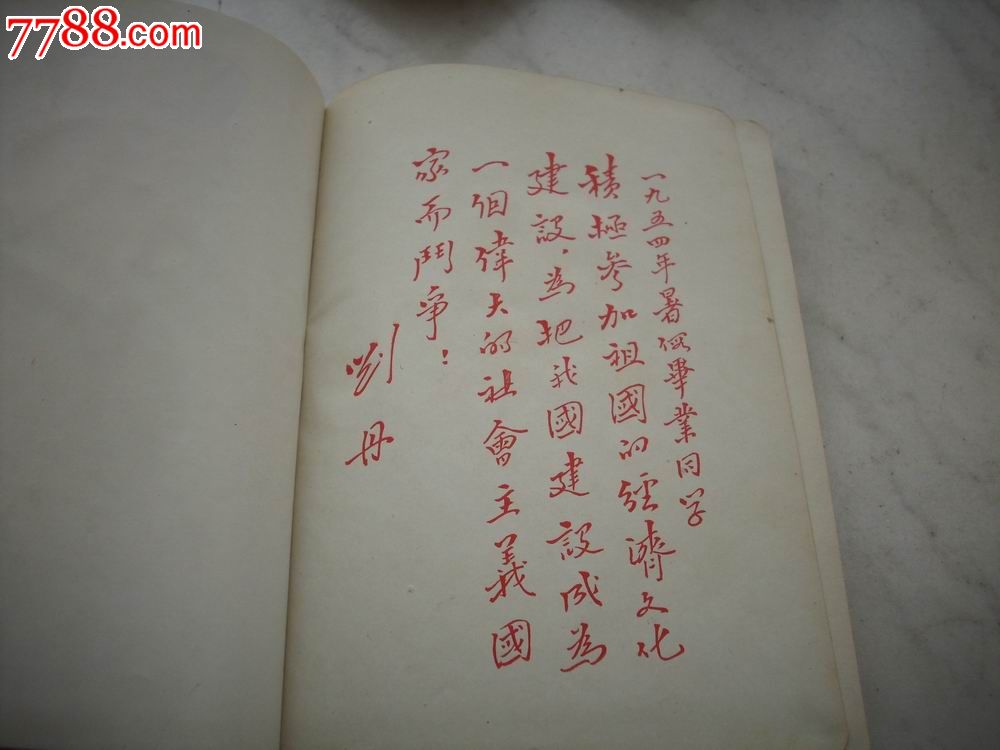 7788.com
一九五四年暑假畢業同学
積極參加祖國的經濟文化
建設，為把我國建設成為
一個偉大的社會主義國
家而鬥爭！
劉丹